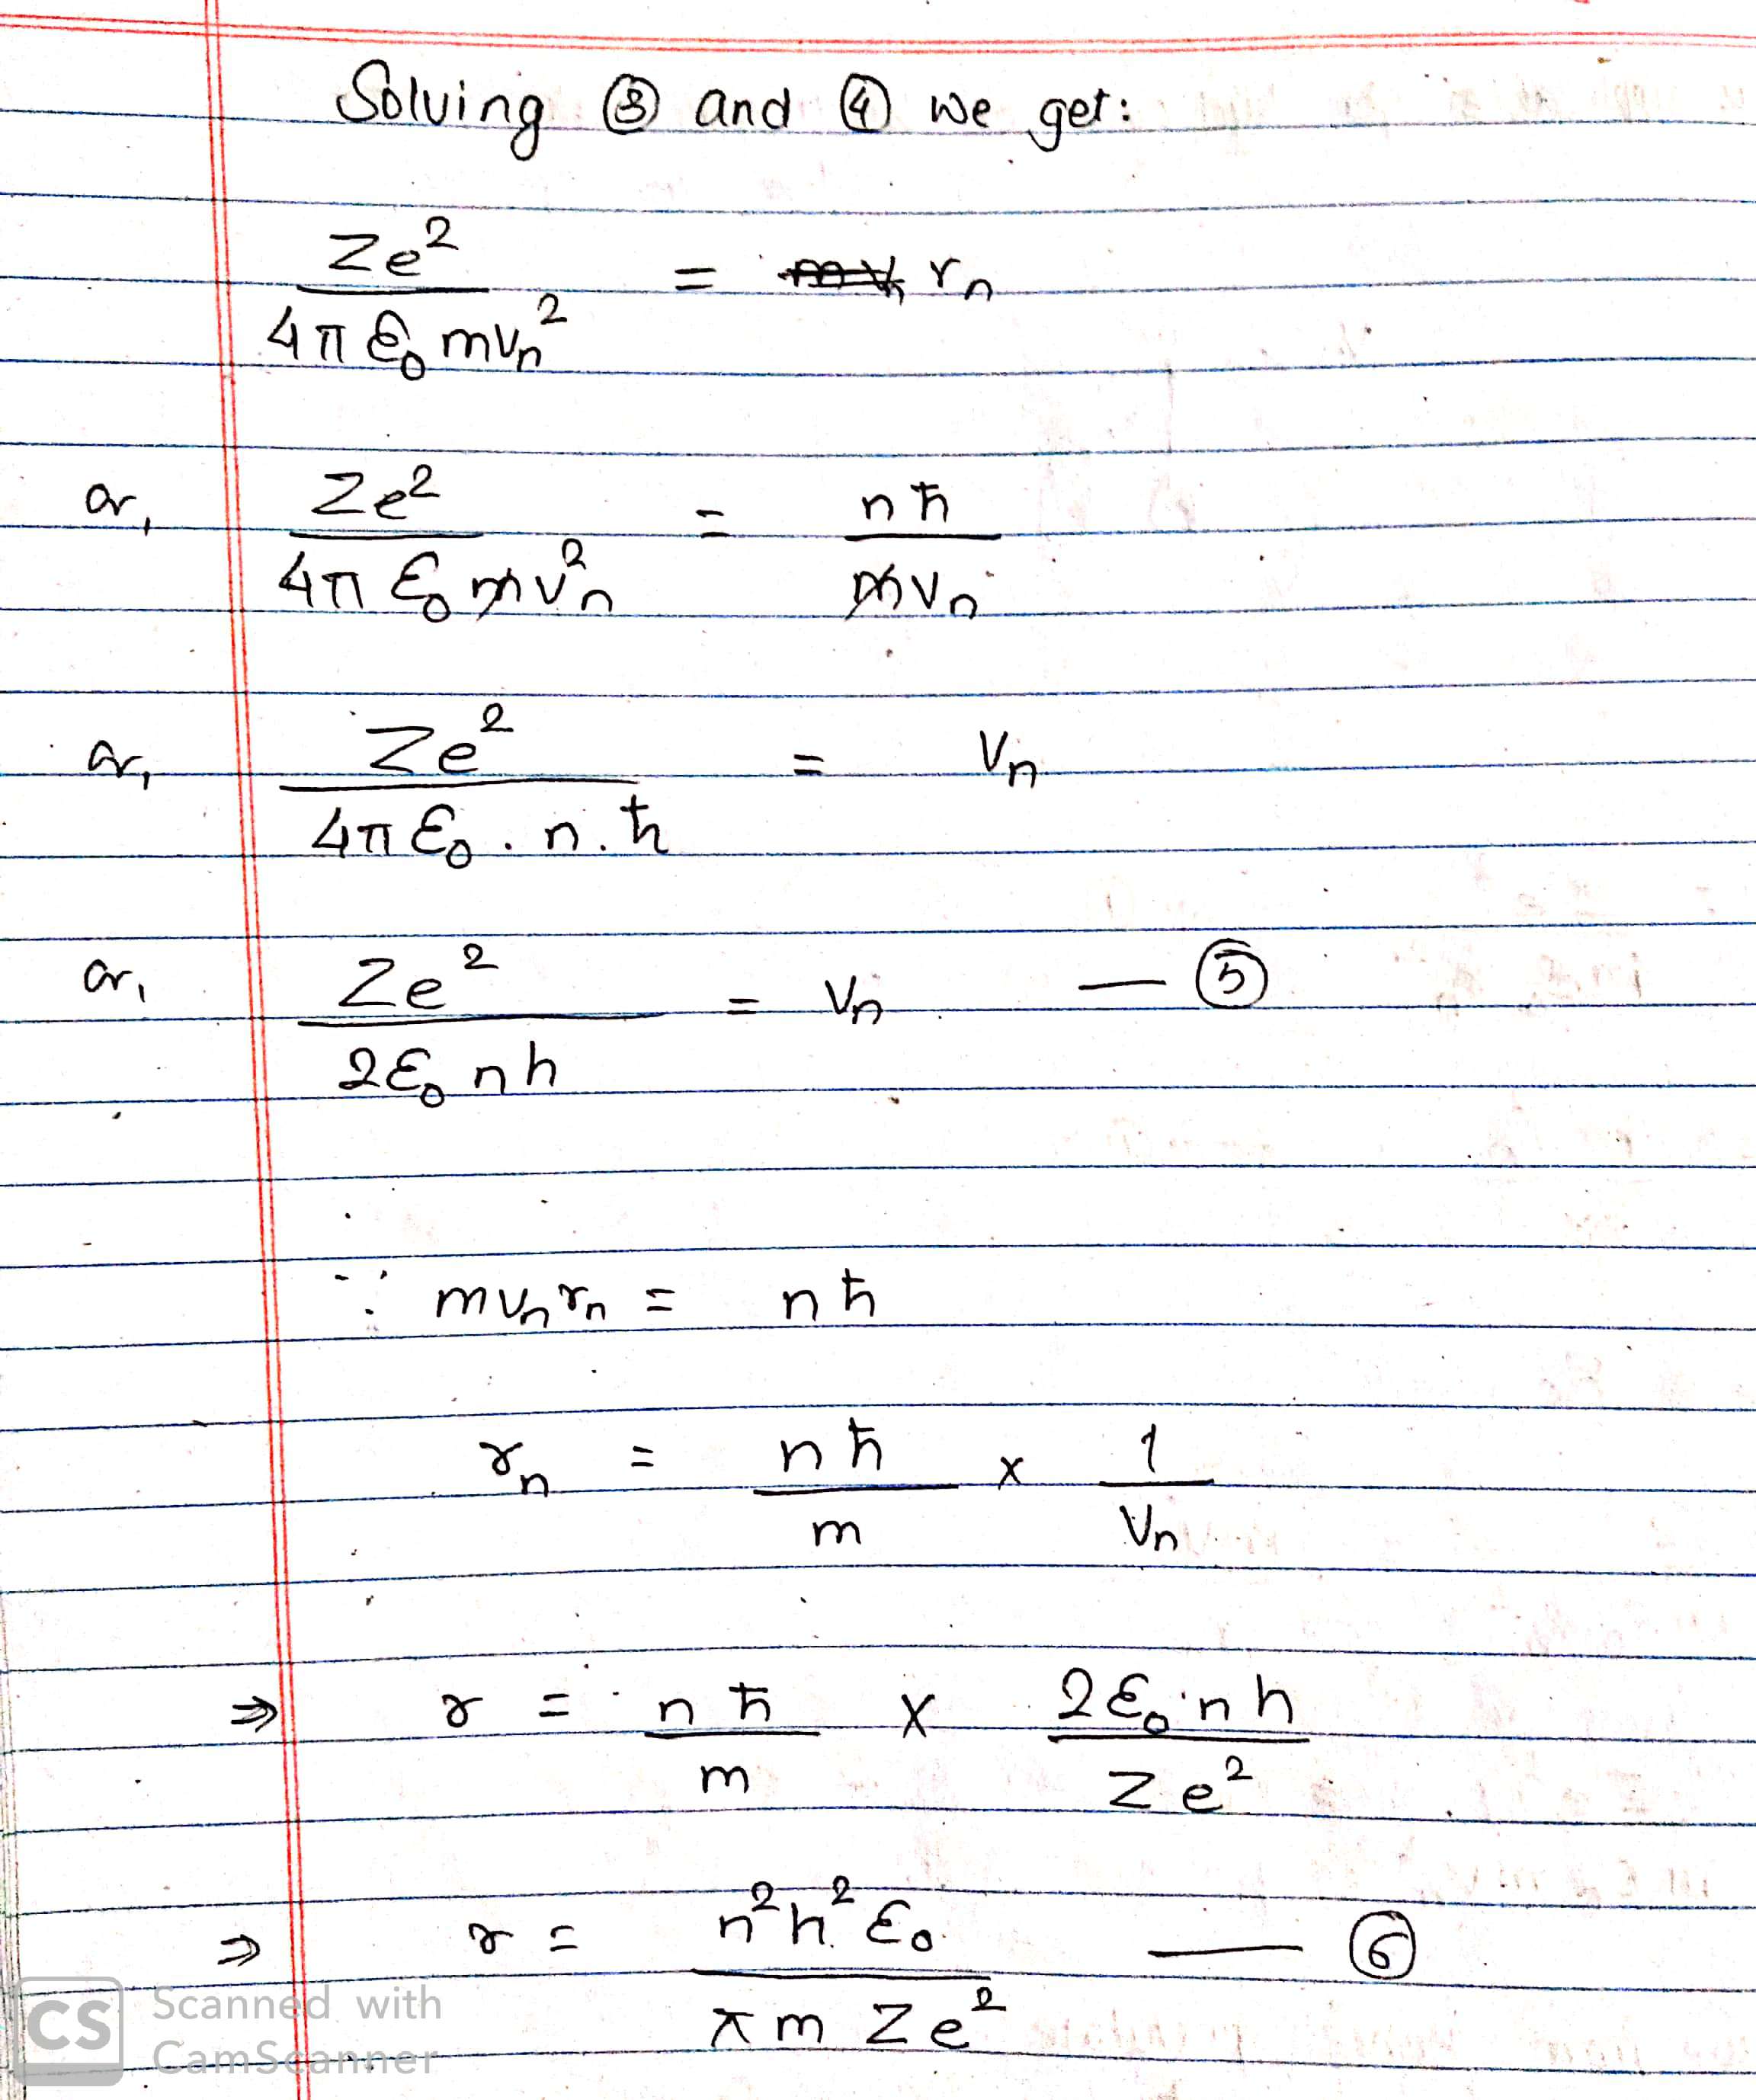 Solving ③ and ④ we get:
Ze² / 4π ε₀ mvₙ² = rₙ
or, Ze² / 4π ε₀ mv²ₙ = nħ / mvₙ
or, Ze² / 4π ε₀ . n . ħ = vₙ
or, Ze² / 2ε₀ nh = vₙ — ⑤
∵ mvₙrₙ = nħ
rₙ = nħ / m × 1 / vₙ
⇒ r = nħ / m × 2ε₀nh / Ze²
⇒ r = n²h² ε₀ / πm Ze² — ⑥
CS Scanned with
CamScanner